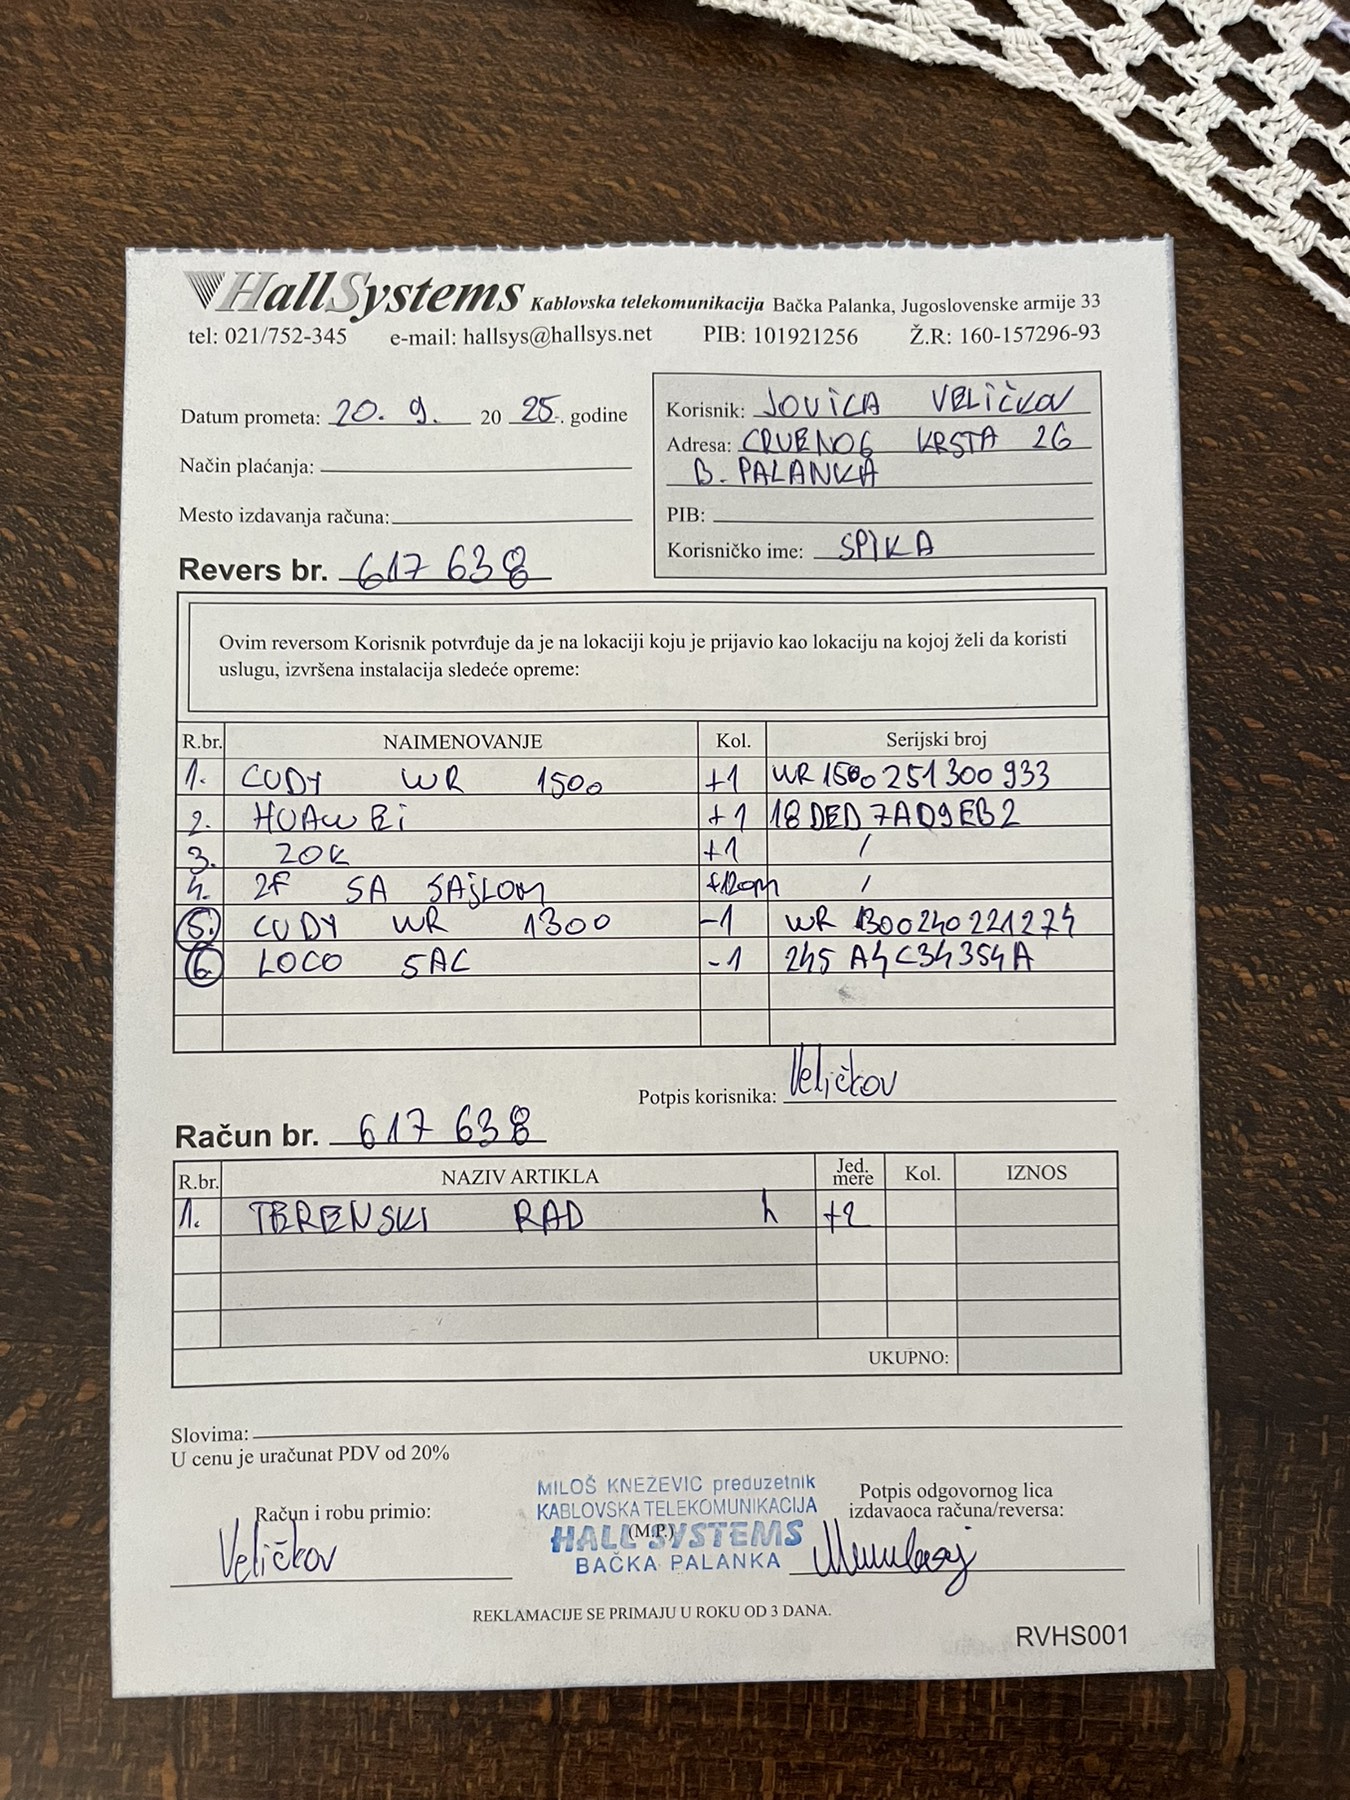 HallSystems Kablovska telekomunikacija Bačka Palanka, Jugoslovenske armije 33
tel: 021/752-345 e-mail: hallsys@hallsys.net PIB: 101921256 Ž.R: 160-157296-93
Datum prometa: 20. 9. 20 25. godine
Način plaćanja:
Mesto izdavanja računa:
Korisnik: JOVICA VELIČKOV
Adresa: CRVENOG KRSTA 26
B. PALANKA
PIB:
Korisničko ime: SPIKA
Revers br. 617 638
Ovim reversom Korisnik potvrđuje da je na lokaciji koju je prijavio kao lokaciju na kojoj želi da koristi
uslugu, izvršena instalacija sledeće opreme:
R.br. NAIMENOVANJE Kol. Serijski broj
1. CUDY WR 1500 +1 WR 1500 251300933
2. HUAWEI +1 18DED7AD9EB2
3. ZOK +1 /
4. 2F SA SAJLOM +120m /
5. CUDY WR 1300 -1 WR 1300240221274
6. LOCO 5AC -1 245A4C34354A
Potpis korisnika: Veličkov
Račun br. 617 638
R.br. NAZIV ARTIKLA Jed. mere Kol. IZNOS
1. TERENSKI RAD h +2
UKUPNO:
Slovima:
U cenu je uračunat PDV od 20%
Račun i robu primio:
Veličkov
MILOŠ KNEŽEVIĆ preduzetnik
KABLOVSKA TELEKOMUNIKACIJA
HALL SYSTEMS
(M.P.)
BAČKA PALANKA
Potpis odgovornog lica
izdavaoca računa/reversa:
REKLAMACIJE SE PRIMAJU U ROKU OD 3 DANA.
RVHS001